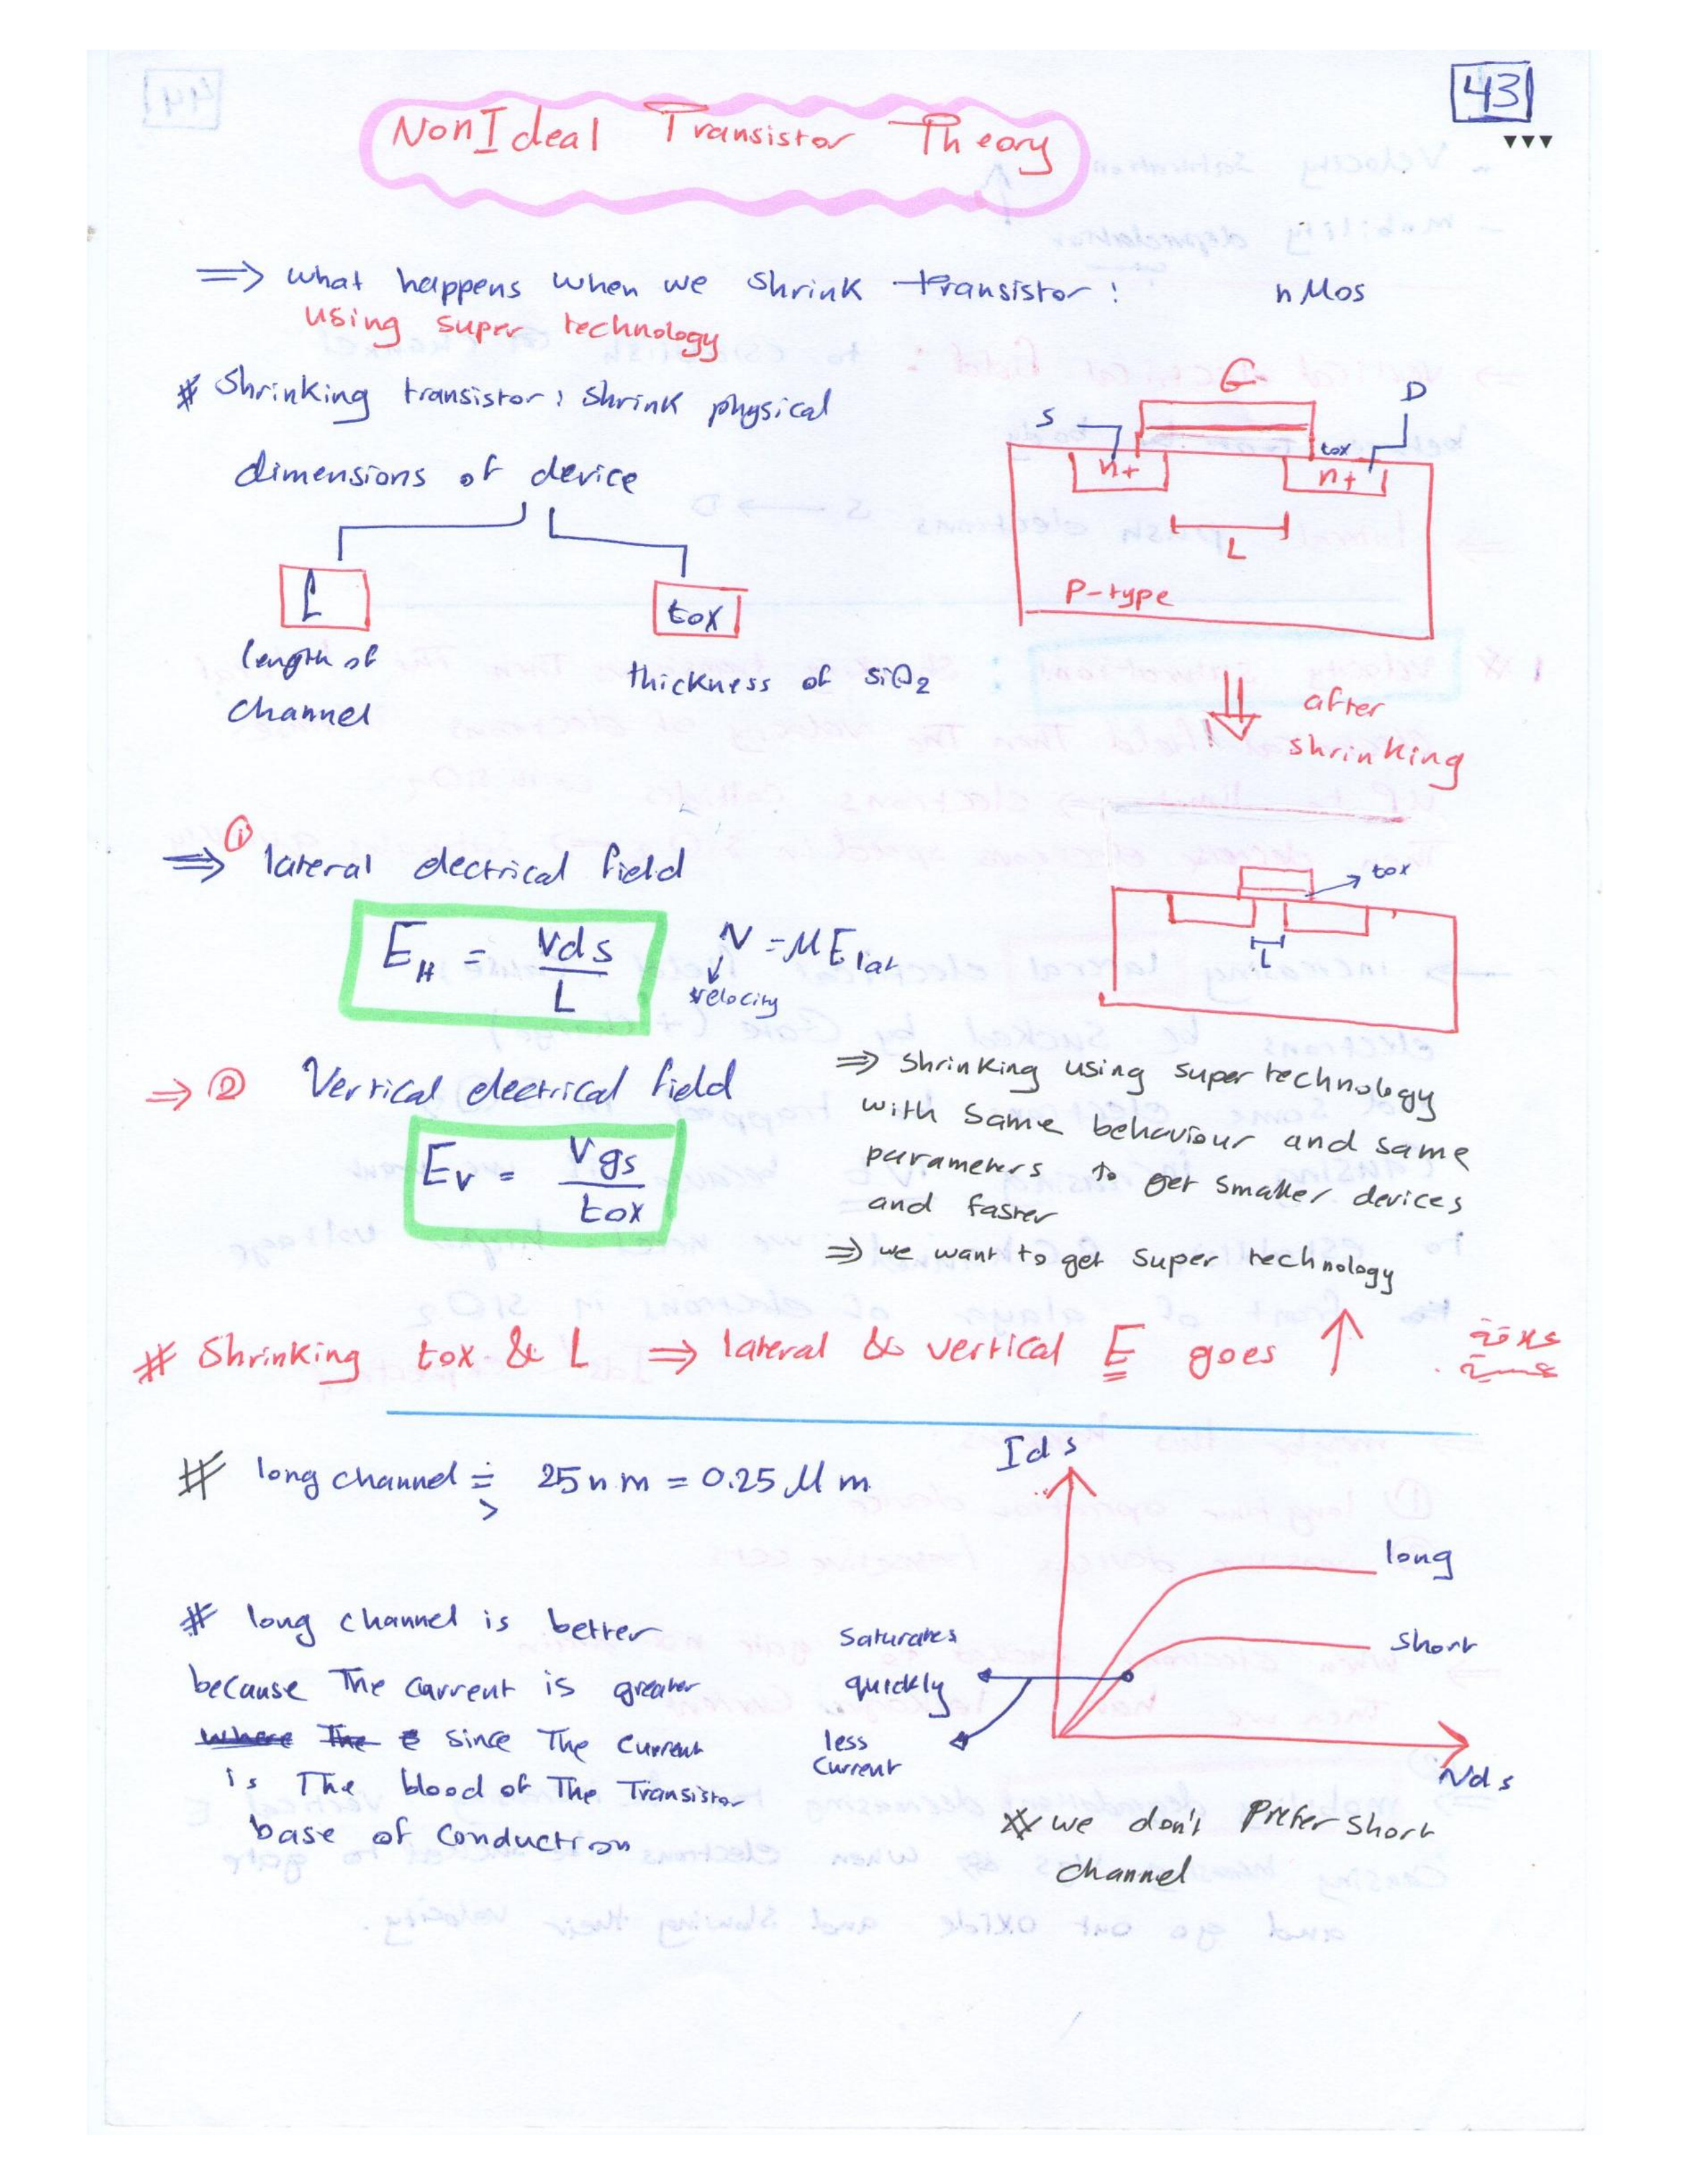 43
▼▼▼
NonIdeal Transistor Theory
⇒ what happens when we shrink transistor: nMos
using super technology
# Shrinking transistor: shrink physical
dimensions of device
L
tox
length of
channel
thickness of siO2
G
S
D
tox
n+
n+
L
P-type
⇓ after
shrinking
tox
L
⇒ ① lateral electrical field
E_H = Vds / L
V = μ E lat
velocity
⇒ ② Vertical electrical field
Ev = Vgs / tox
⇒ shrinking using super technology
with same behaviour and same
parameters to get smaller devices
and faster
⇒ we want to get super technology
# Shrinking tox & L ⇒ lateral & vertical E goes ↑
# long channel = > 25nm = 0.25 μm
# long channel is better
because The current is greater
since The current
is The blood of The Transistor
base of conduction
Ids
long
short
Saturates
quickly
less
current
Vds
# we don't Prefer short
channel